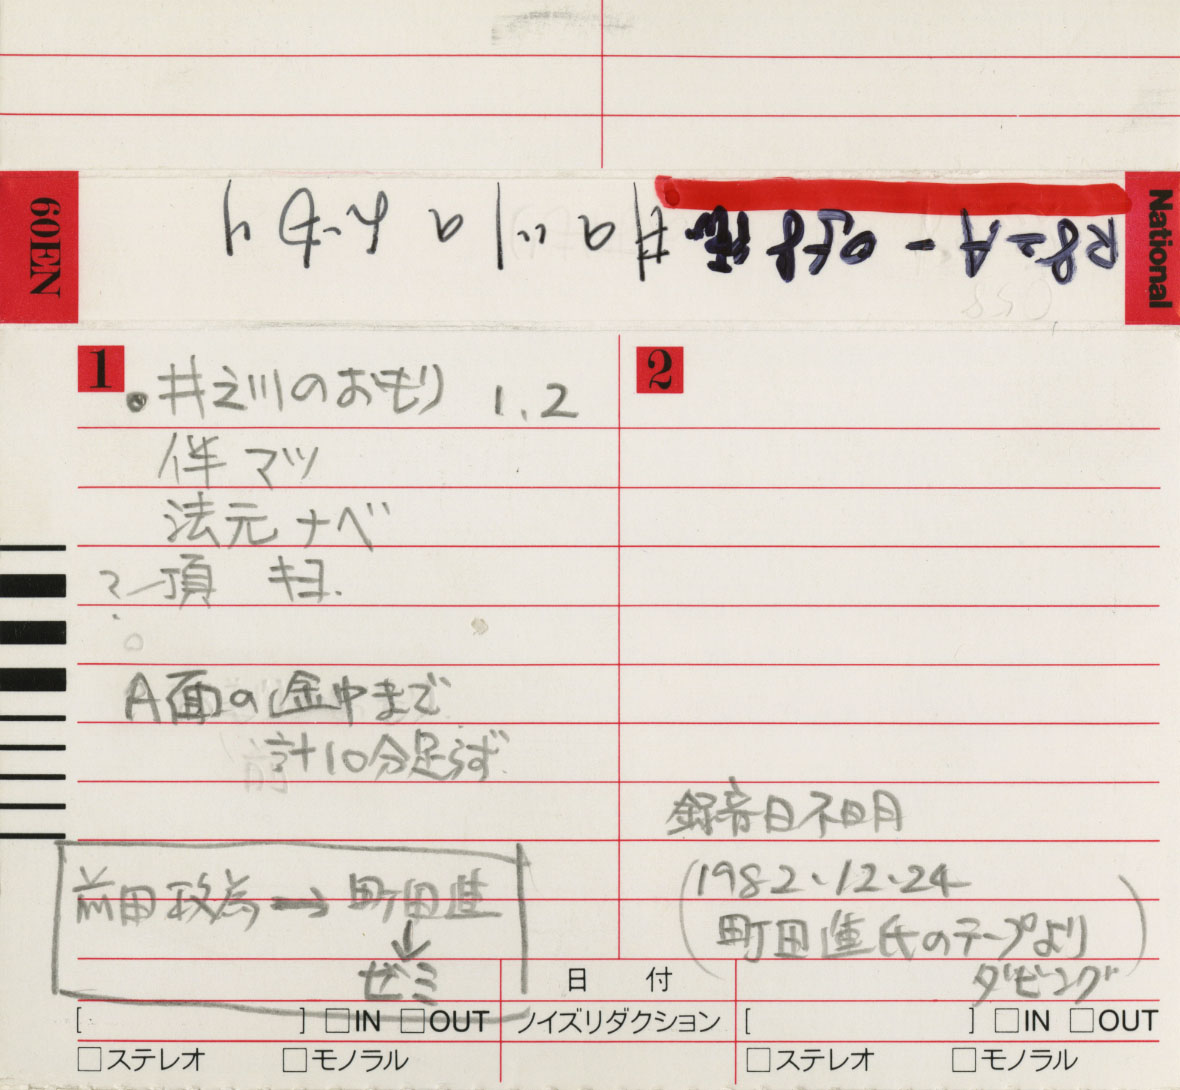 National
60EN
058
1
・井之川のおもり 1,2
伴 マツ
法元 ナベ
?一頂 キヨ.
A面の途中まで
計10分足らず
前田 → 町田進
↓
ゼミ
2
録音日不明
(1982.12.24
町田進氏のテープより
ダビング)
日 付
[ ] □IN □OUT
ノイズリダクション
[ ] □IN □OUT
□ステレオ □モノラル
□ステレオ □モノラル